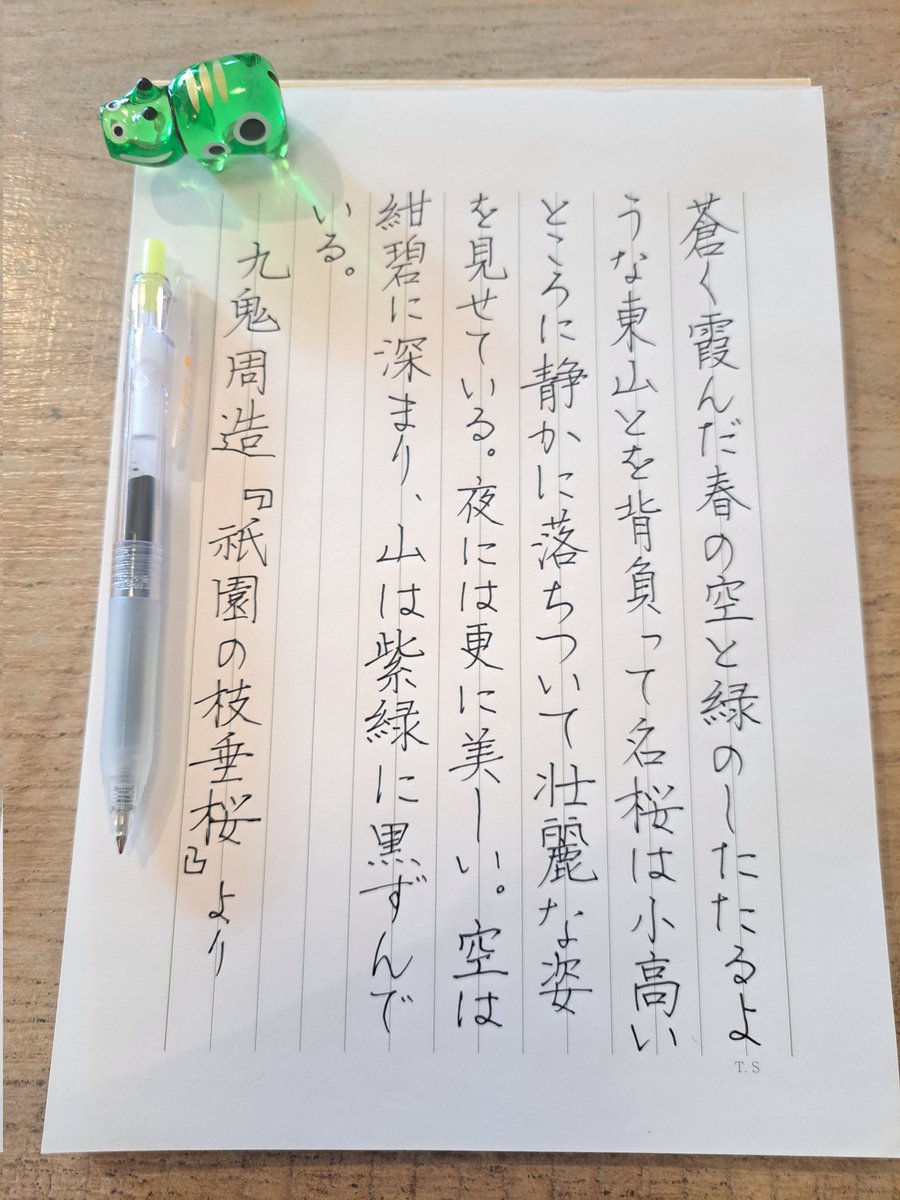 蒼く霞んだ春の空と緑のしたたるよ
うな東山とを背負って名桜は小高い
ところに静かに落ちついて壮麗な姿
を見せている。夜には更に美しい。空は
紺碧に深まり、山は紫緑に黒ずんで
いる。
九鬼周造『祇園の枝垂桜』より
T.S